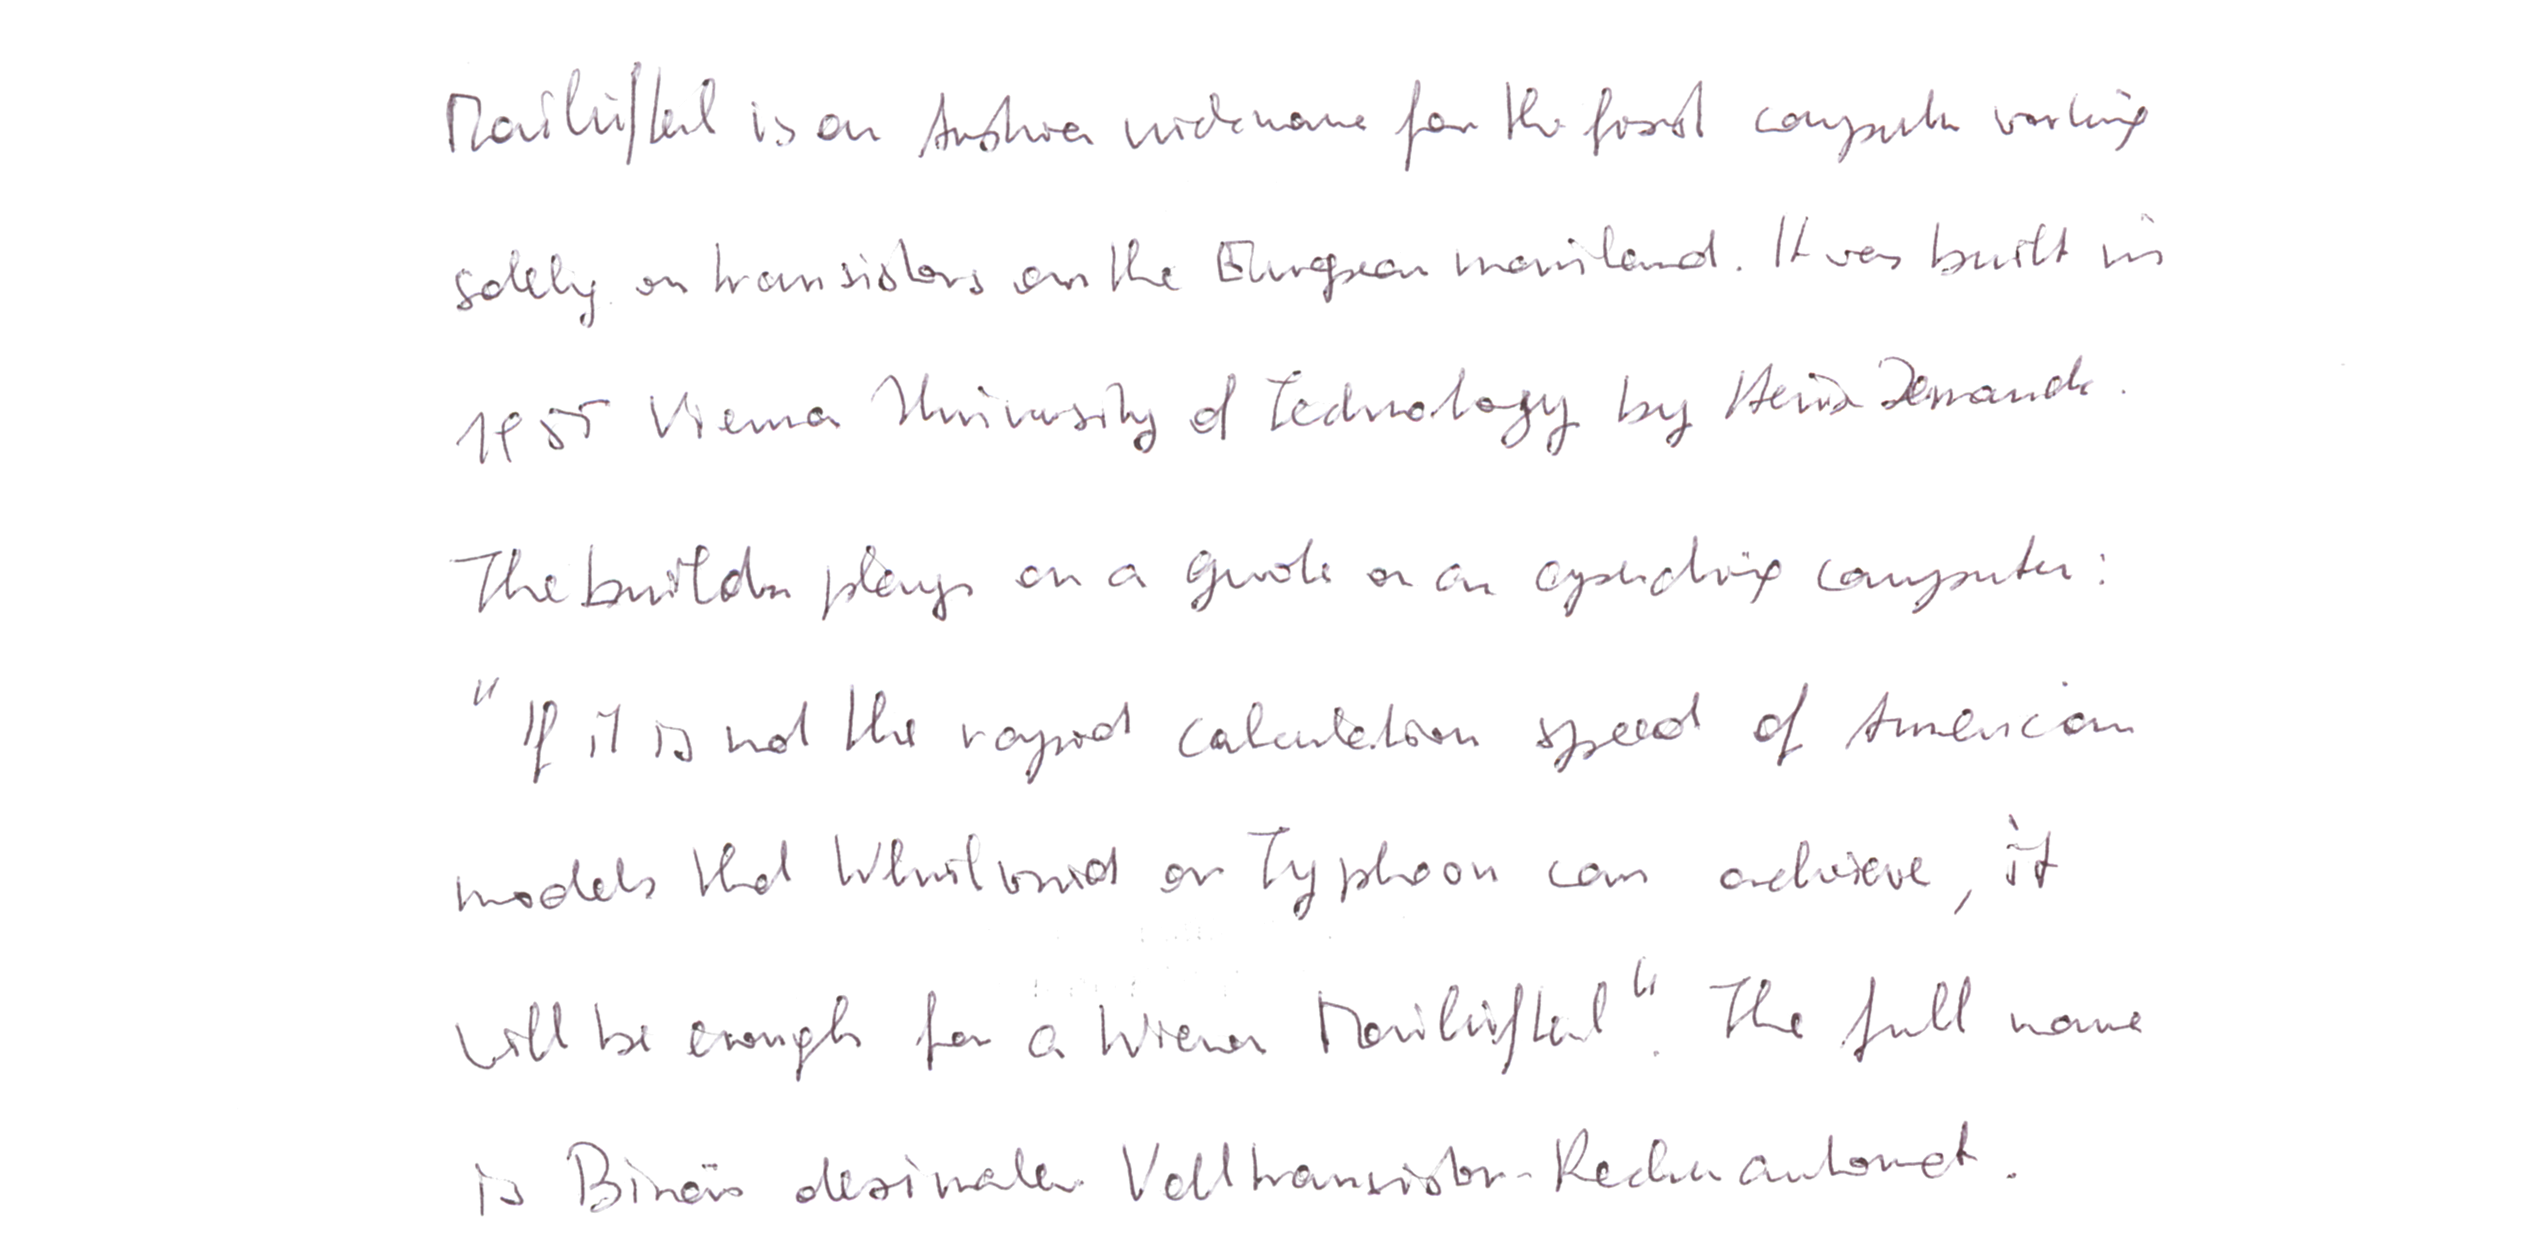 Mailüfterl is an Austrian nickname for the first computer working
solely on transistors on the European mainland. It was built in
1955 Vienna University of Technology by Heinz Zemanek.
The builder plays on a quote on an operating computer:
"If it is not the rapid calculation speed of American
models that Whirlwind or Typhoon can achieve, it
will be enough for a Wiener Mailüfterl". The full name
is Binär dezimaler Volltransistor-Rechenautomat.